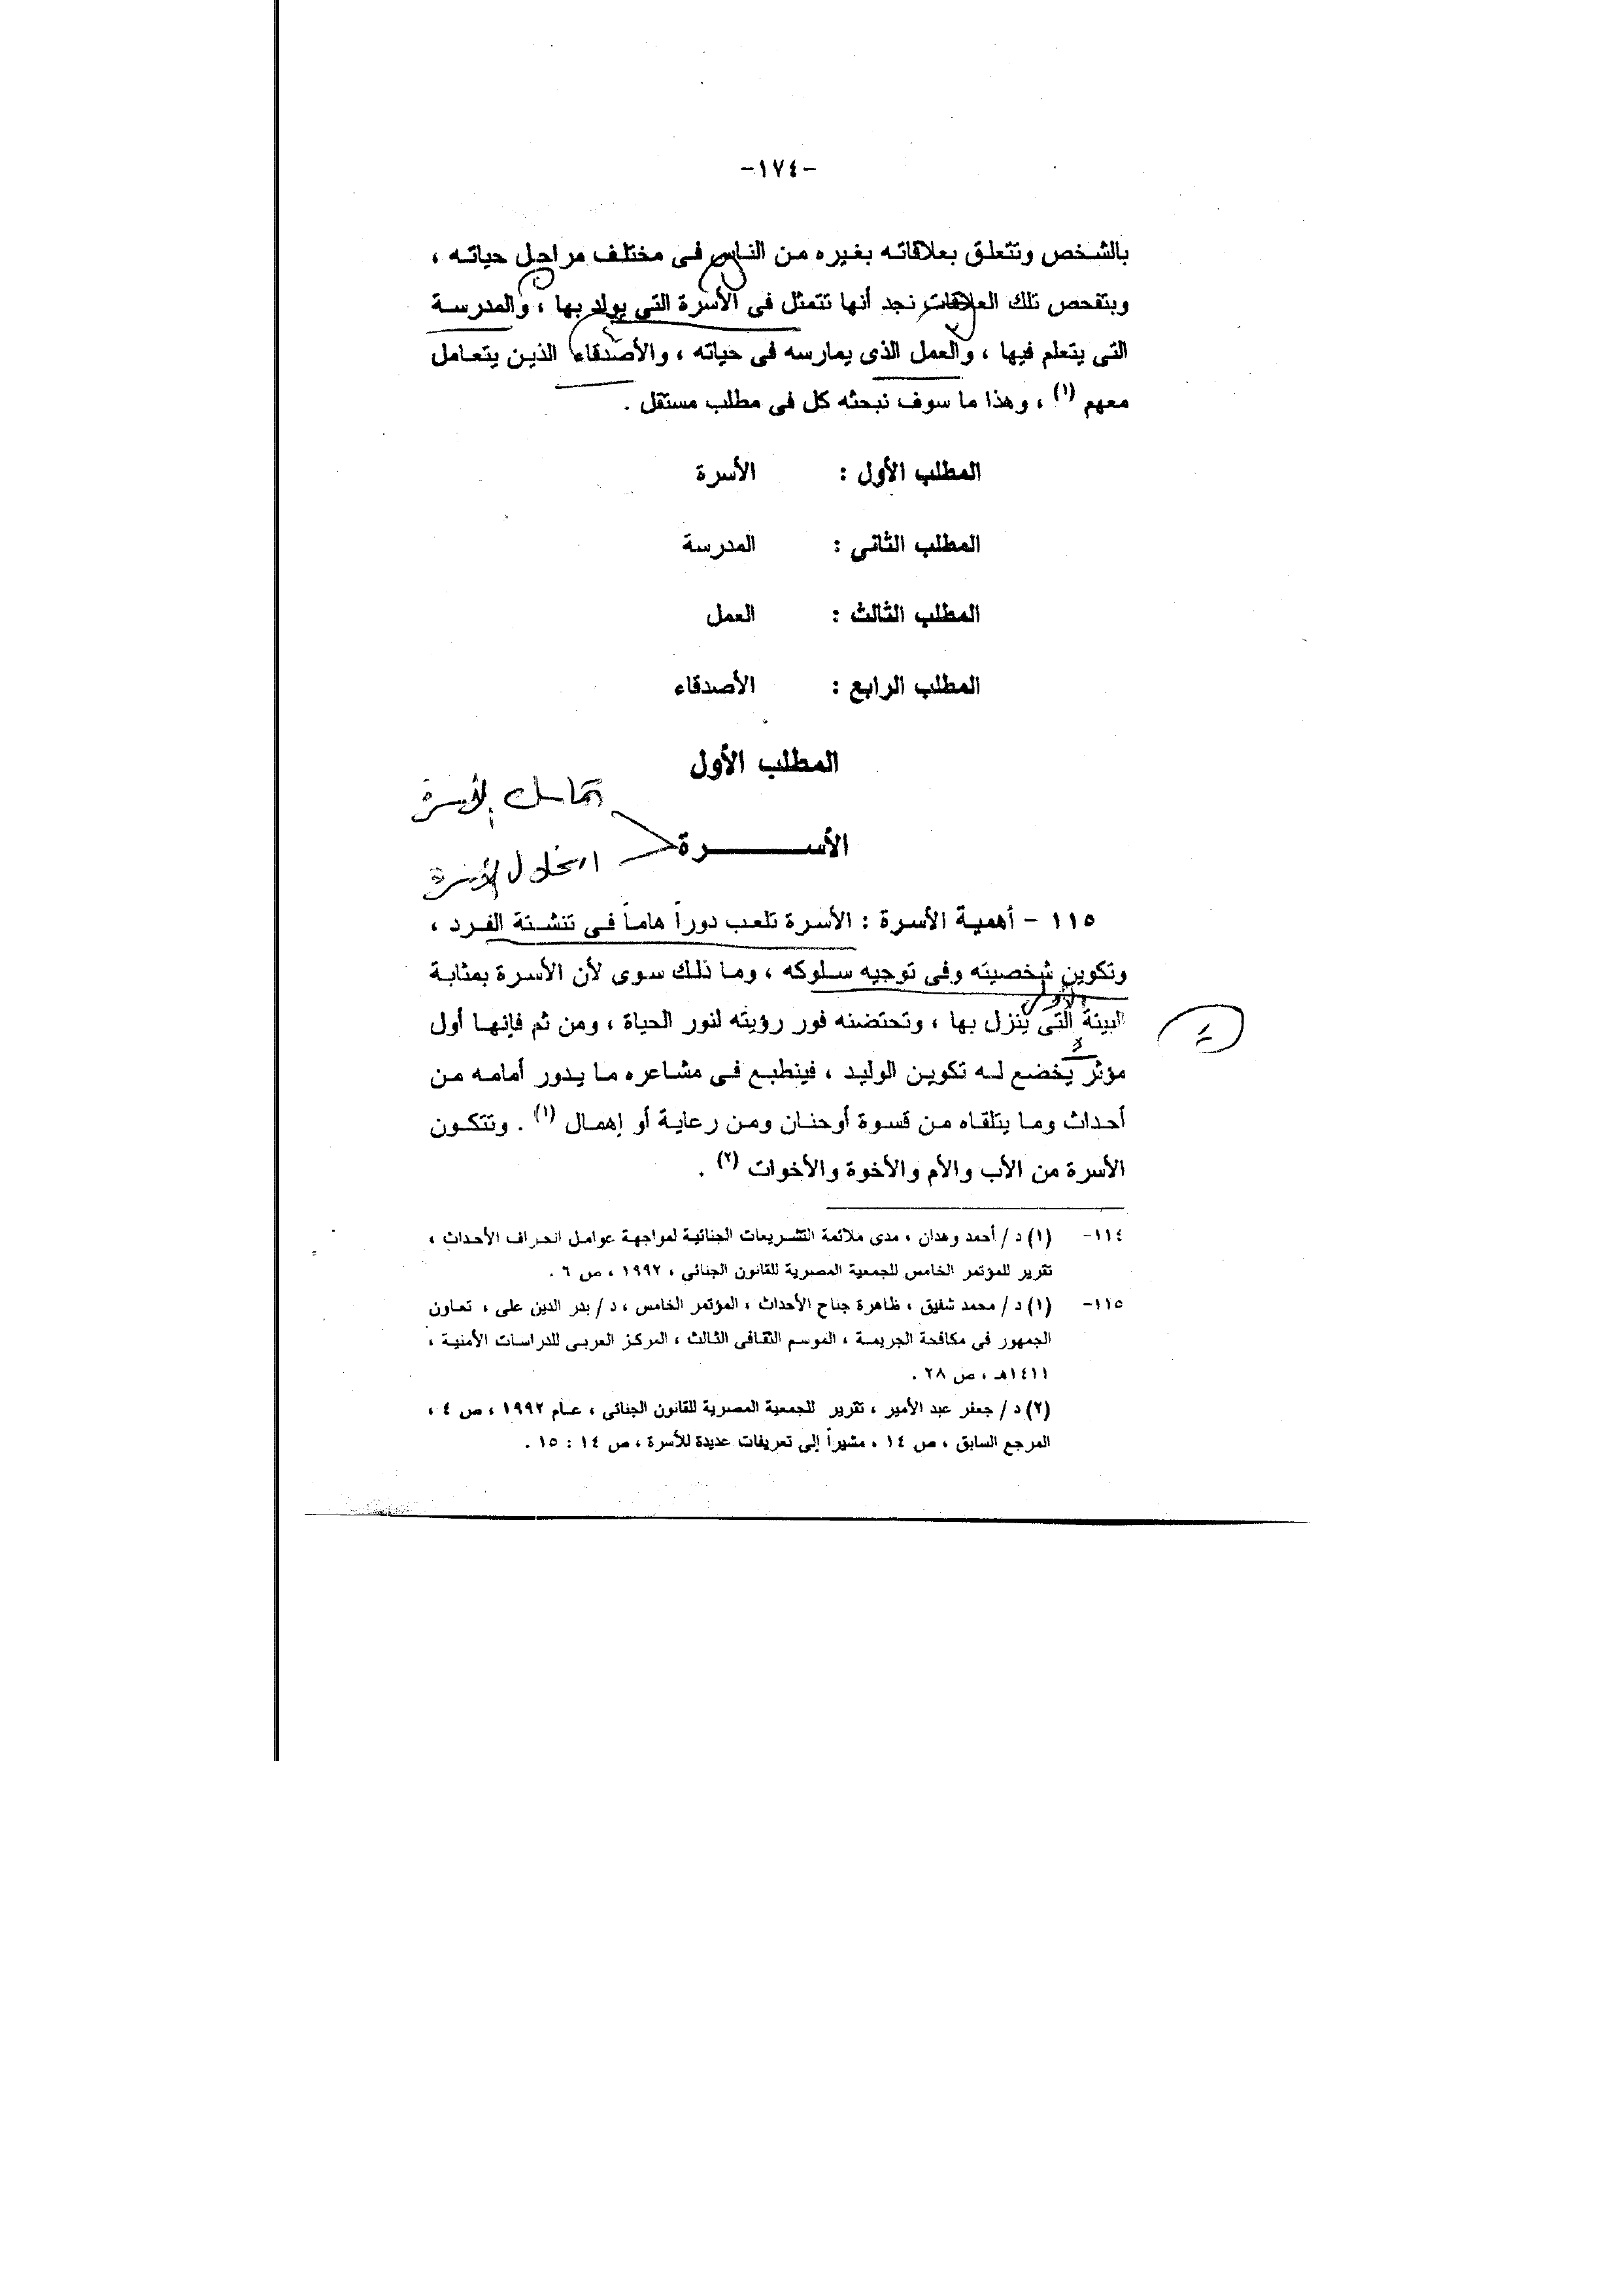 -١٧٤-
بالشخص وتتعلق بعلاقاته بغيره من الناس فى مختلف مراحل حياته ،
وبتفحص تلك العلاقات نجد أنها تتمثل فى الأسرة التى يولد بها ، والمدرسة
التى يتعلم فيها ، والعمل الذى يمارسه فى حياته ، والأصدقاء الذين يتعامل
معهم (١) ، وهذا ما سوف نبحثه كل فى مطلب مستقل .
المطلب الأول : الأسرة
المطلب الثانى : المدرسة
المطلب الثالث : العمل
المطلب الرابع : الأصدقاء
المطلب الأول
تماسك الأسرة
الأســـــــرة
انحلال الأسرة
١١٥ - أهمية الأسرة : الأسرة تلعب دوراً هاماً فى تنشئة الفرد ،
وتكوين شخصيته وفى توجيه سلوكه ، وما ذلك سوى لأن الأسرة بمثابة
الأولى
البيئة التى ينزل بها ، وتحتضنه فور رؤيته لنور الحياة ، ومن ثم فإنها أول
مؤثر يخضع له تكوين الوليد ، فينطبع فى مشاعره ما يدور أمامه من
أحداث وما يتلقاه من قسوة أوحنان ومن رعاية أو إهمال (١) . وتتكون
الأسرة من الأب والأم والأخوة والأخوات (٢) .
١١٤- (١) د / أحمد وهدان ، مدى ملائمة التشريعات الجنائية لمواجهة عوامل انحراف الأحداث ،
تقرير للمؤتمر الخامس للجمعية المصرية للقانون الجنائى ، ١٩٩٢ ، ص ٦ .
١١٥- (١) د / محمد شفيق ، ظاهرة جناح الأحداث ، المؤتمر الخامس ، د / بدر الدين على ، تعاون
الجمهور فى مكافحة الجريمة ، الموسم الثقافى الثالث ، المركز العربى للدراسات الأمنية ،
١٤١١هـ ، ص ٢٨ .
(٢) د / جعفر عبد الأمير ، تقرير للجمعية المصرية للقانون الجنائى ، عام ١٩٩٢ ، ص ٤ ،
المرجع السابق ، ص ١٤ ، مشيراً إلى تعريفات عديدة للأسرة ، ص ١٤ : ١٥ .